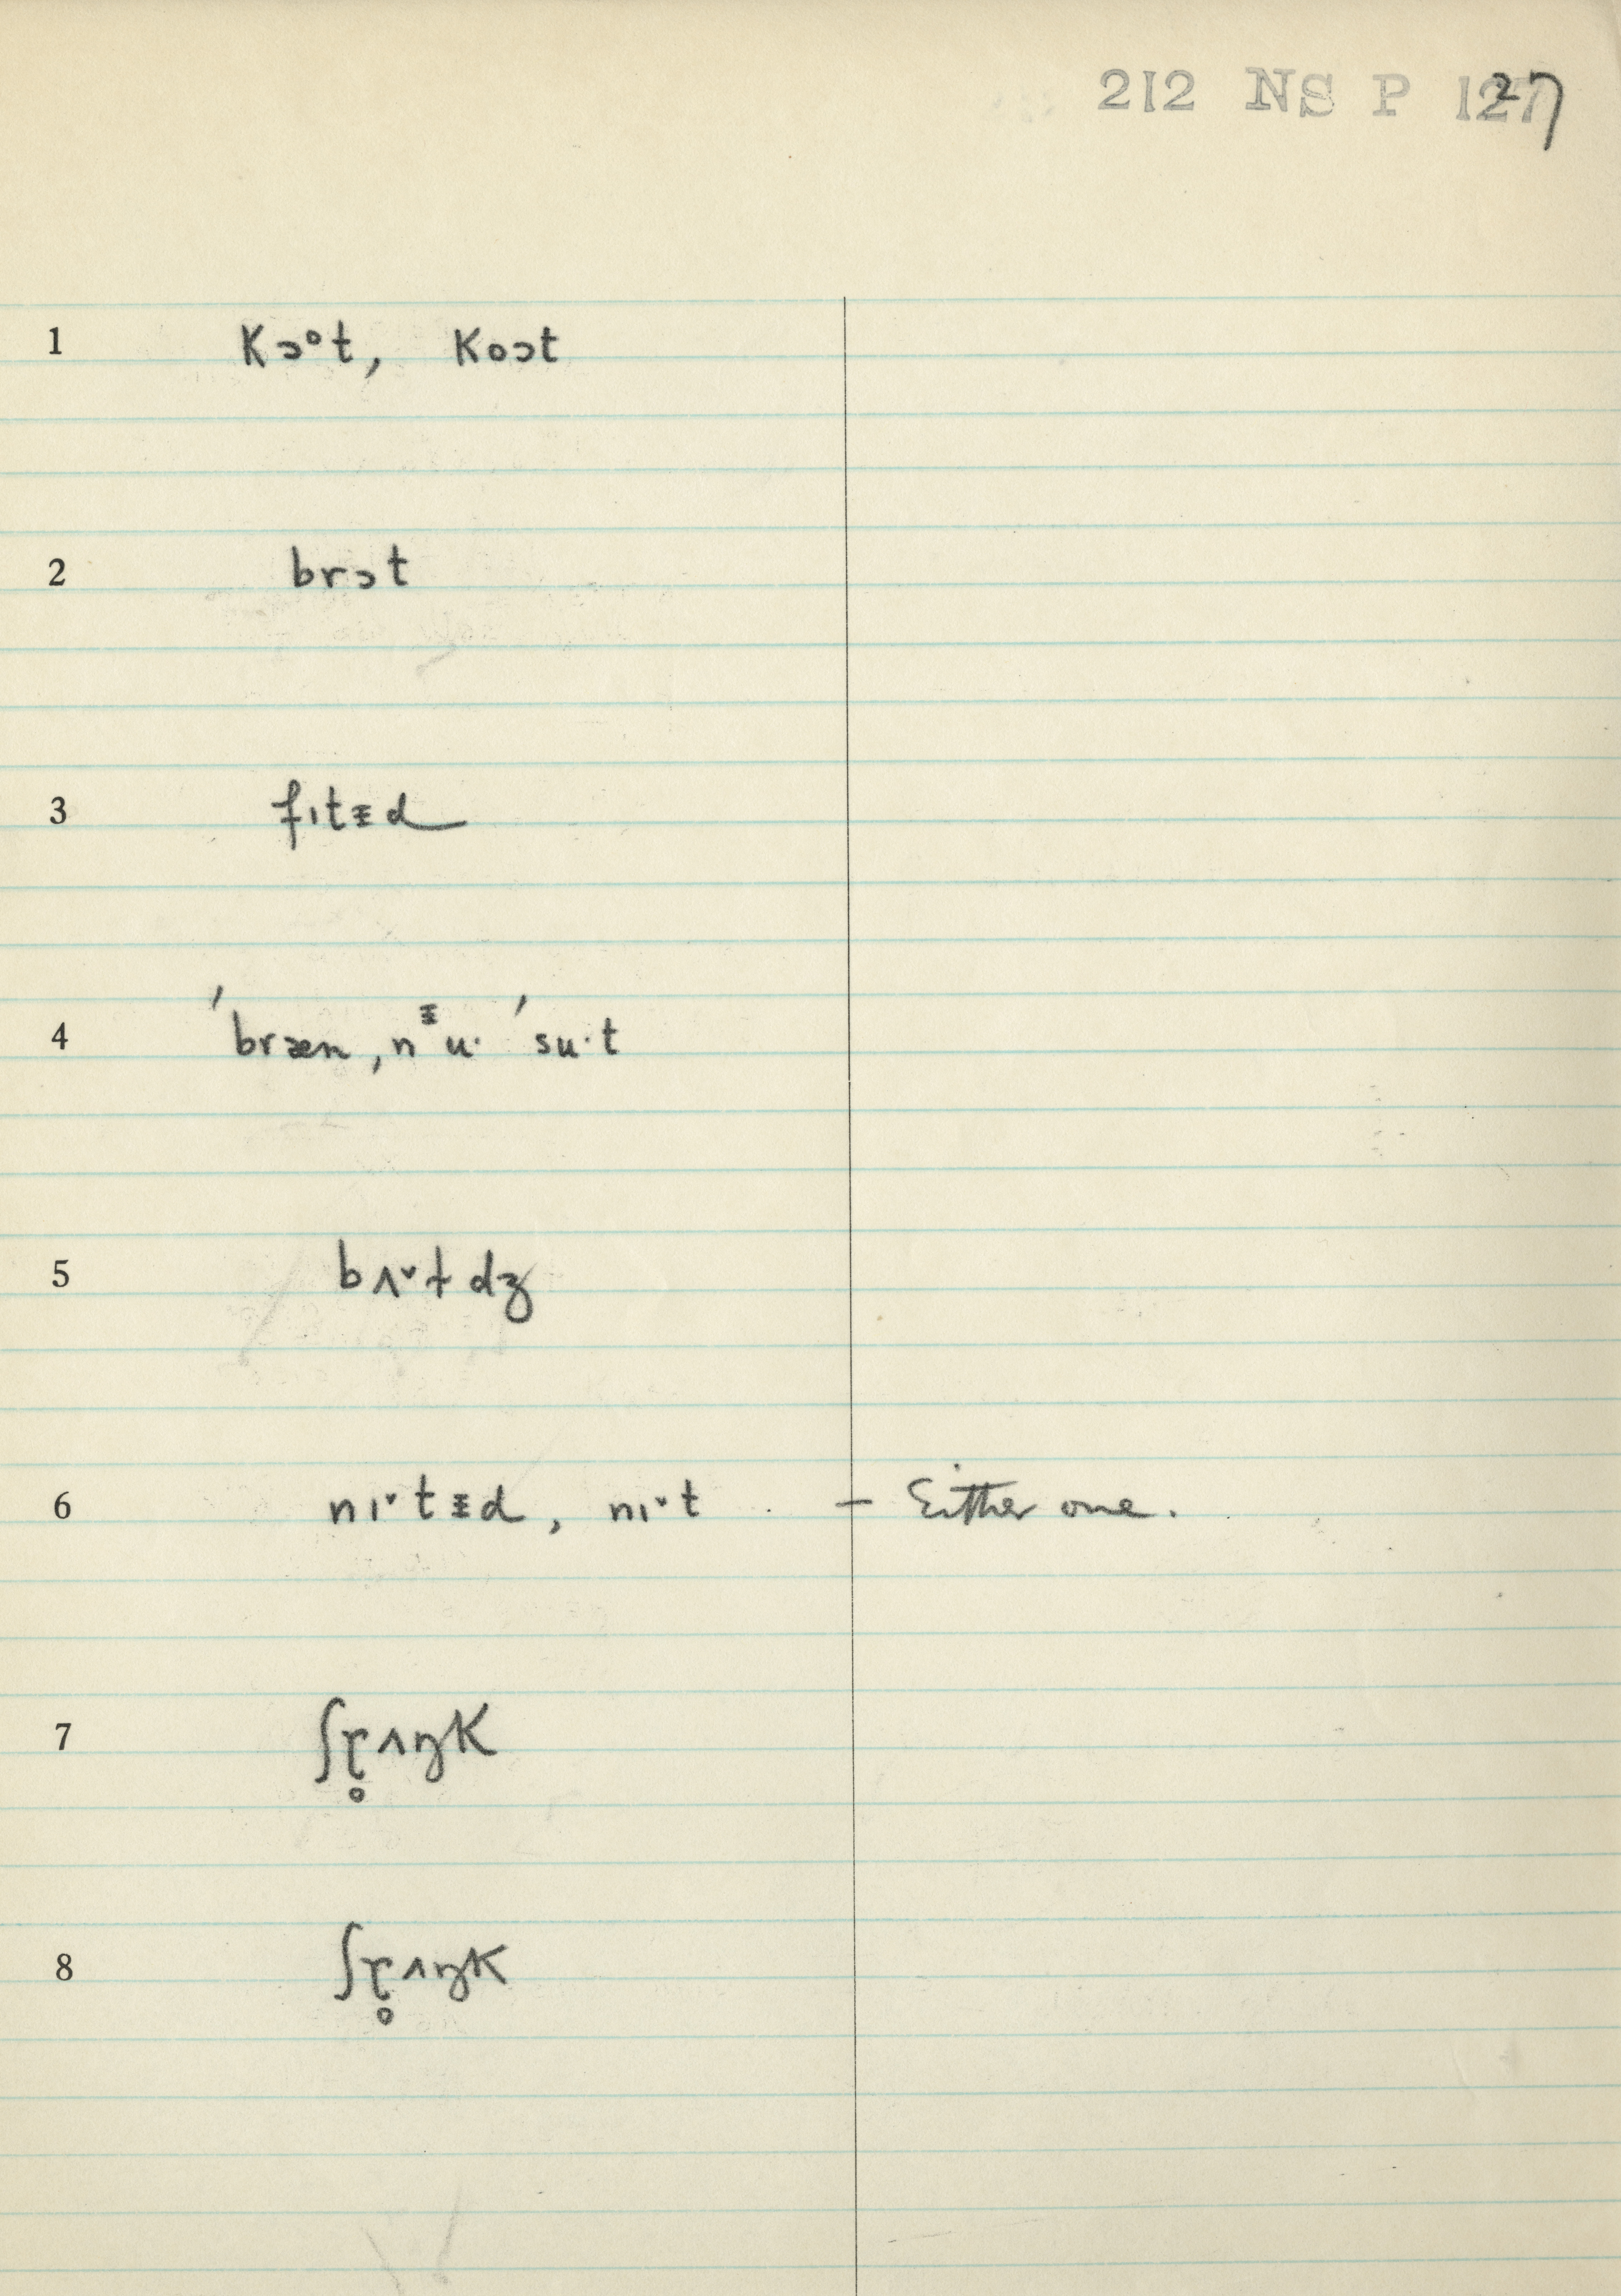 212 NS P 127
1 kɔᵒt, koɔt
2 brɔt
3 fɪtɨd
4 ˈbræn ˌnᶤu· ˈsu·t
5 bʌ˅tdʒ
6 nɪ˅tɨd, nɪ˅t — Either one.
7 ʃɽ̊ʌŋk
8 ʃɽ̊ʌŋk